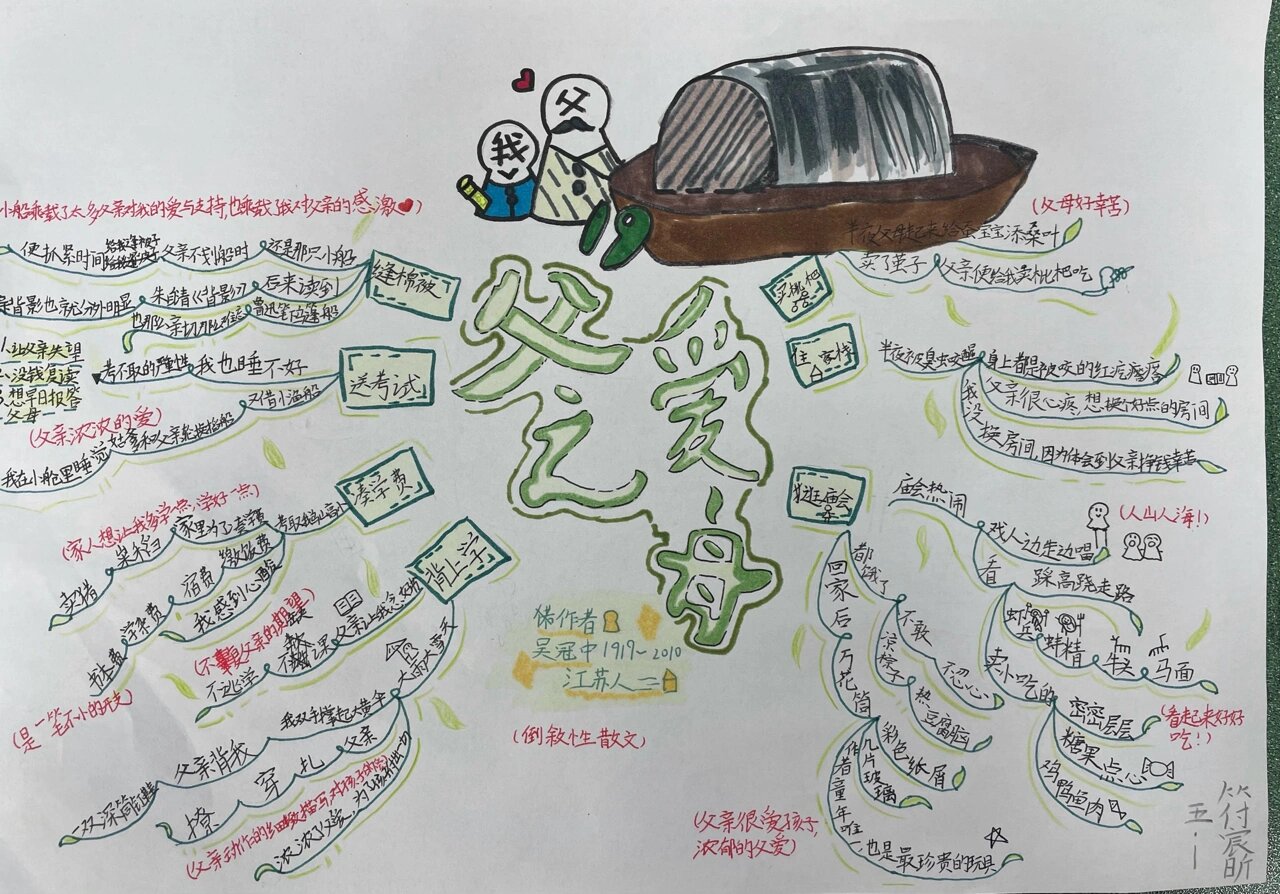 我
父
小船乘载了太多父亲对我的爱与支持,也乘载了我对父亲的感激
父爱之舟
缝棉被
还是那只小船
父亲不划船时
便抓紧时间
后来读到
朱自清《背影》
背影也就分外明显
鲁迅笔下乌篷船
也那么亲切
送考试
我也睡不好
考不取的
让父亲失望
没钱复读
想早日报答
父母
又借小渔船
姑爹和父亲轮换摇船
我在小船里睡觉
(父亲浓浓的爱)
凑学费
考取
家里为了凑学费
粜稻
卖猪
(家人想让我多学一点,学好一点)
缴饭费
宿费
学杂费
书本费
我感到心酸
(是一笔不小的开支)
背上学
父亲上我念好的
不逃学
(不辜负父亲的期望)
大雨大雪天
我双手撑起大黄伞
父亲背我
一双深筒钉鞋
父亲
扎
穿
撩
(父亲动作的细致描写,对孩子的
买枇杷
(父母好辛苦)
半夜父母起来给蚕宝宝添桑叶
卖了茧子
父亲便给我买枇杷吃
住客栈
半夜被臭虫咬醒
身上都是被咬的红疙瘩
父亲很心疼,想换个好点的房间
我没换房间,因为体会到父亲挣钱辛苦
逛庙会
庙会热闹
看
戏人边走边唱
(人山人海!)
踩高跷走路
虾兵
蚌精
牛头
马面
卖小吃的
密密层层
(看起来好好吃!)
糖果点心
鸡鸭鱼肉
都饿了
不敢
忍心
凉粽子
热豆腐脑
回家后
万花筒
彩色纸屑
几片玻璃
作者童年唯一也是最珍贵的玩具
(父亲很爱孩子,
浓郁的父爱)
作者
吴冠中1919~2010
江苏人
(倒叙性散文)
五一